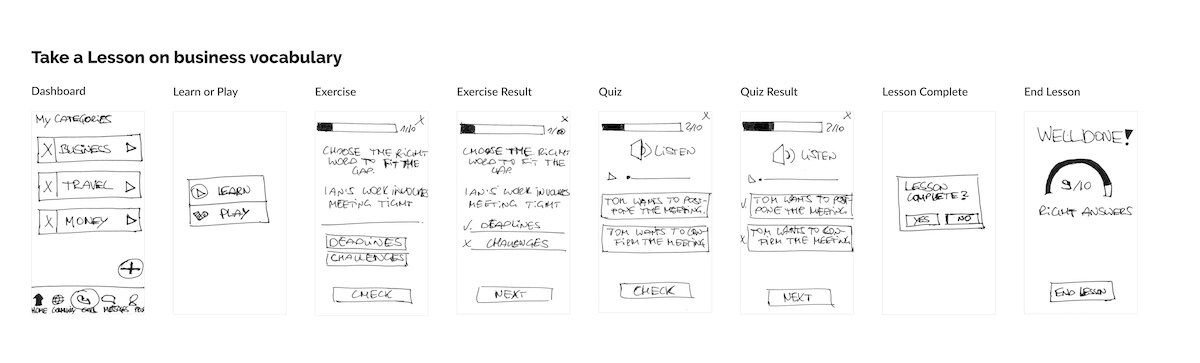 Take a Lesson on business vocabulary
Dashboard
My CATEGORIES
X BUSINESS
X TRAVEL
X MONEY
+
HOME
Learn or Play
LEARN
PLAY
Exercise
X
1/10
CHOOSE THE RIGHT
WORD TO FIT THE
GAP.
IAN'S WORK INVOLVES
MEETING TIGHT
DEADLINES
CHALLENGES
CHECK
Exercise Result
X
1/10
CHOOSE THE RIGHT
WORD TO FIT THE
GAP.
IAN'S WORK INVOLVES
MEETING TIGHT
DEADLINES
X CHALLENGES
NEXT
Quiz
X
2/10
LISTEN
TOM WANTS TO POST-
PONE THE MEETING.
TOM WANTS TO CON-
FIRM THE MEETING
CHECK
Quiz Result
X
2/10
LISTEN
TOM WANTS TO POST-
PONE THE MEETING.
X TOM WANTS TO CON-
FIRM THE MEETING
NEXT
Lesson Complete
LESSON
COMPLETE?
YES NO
End Lesson
WELL DONE!
9/10
RIGHT ANSWERS
END LESSON